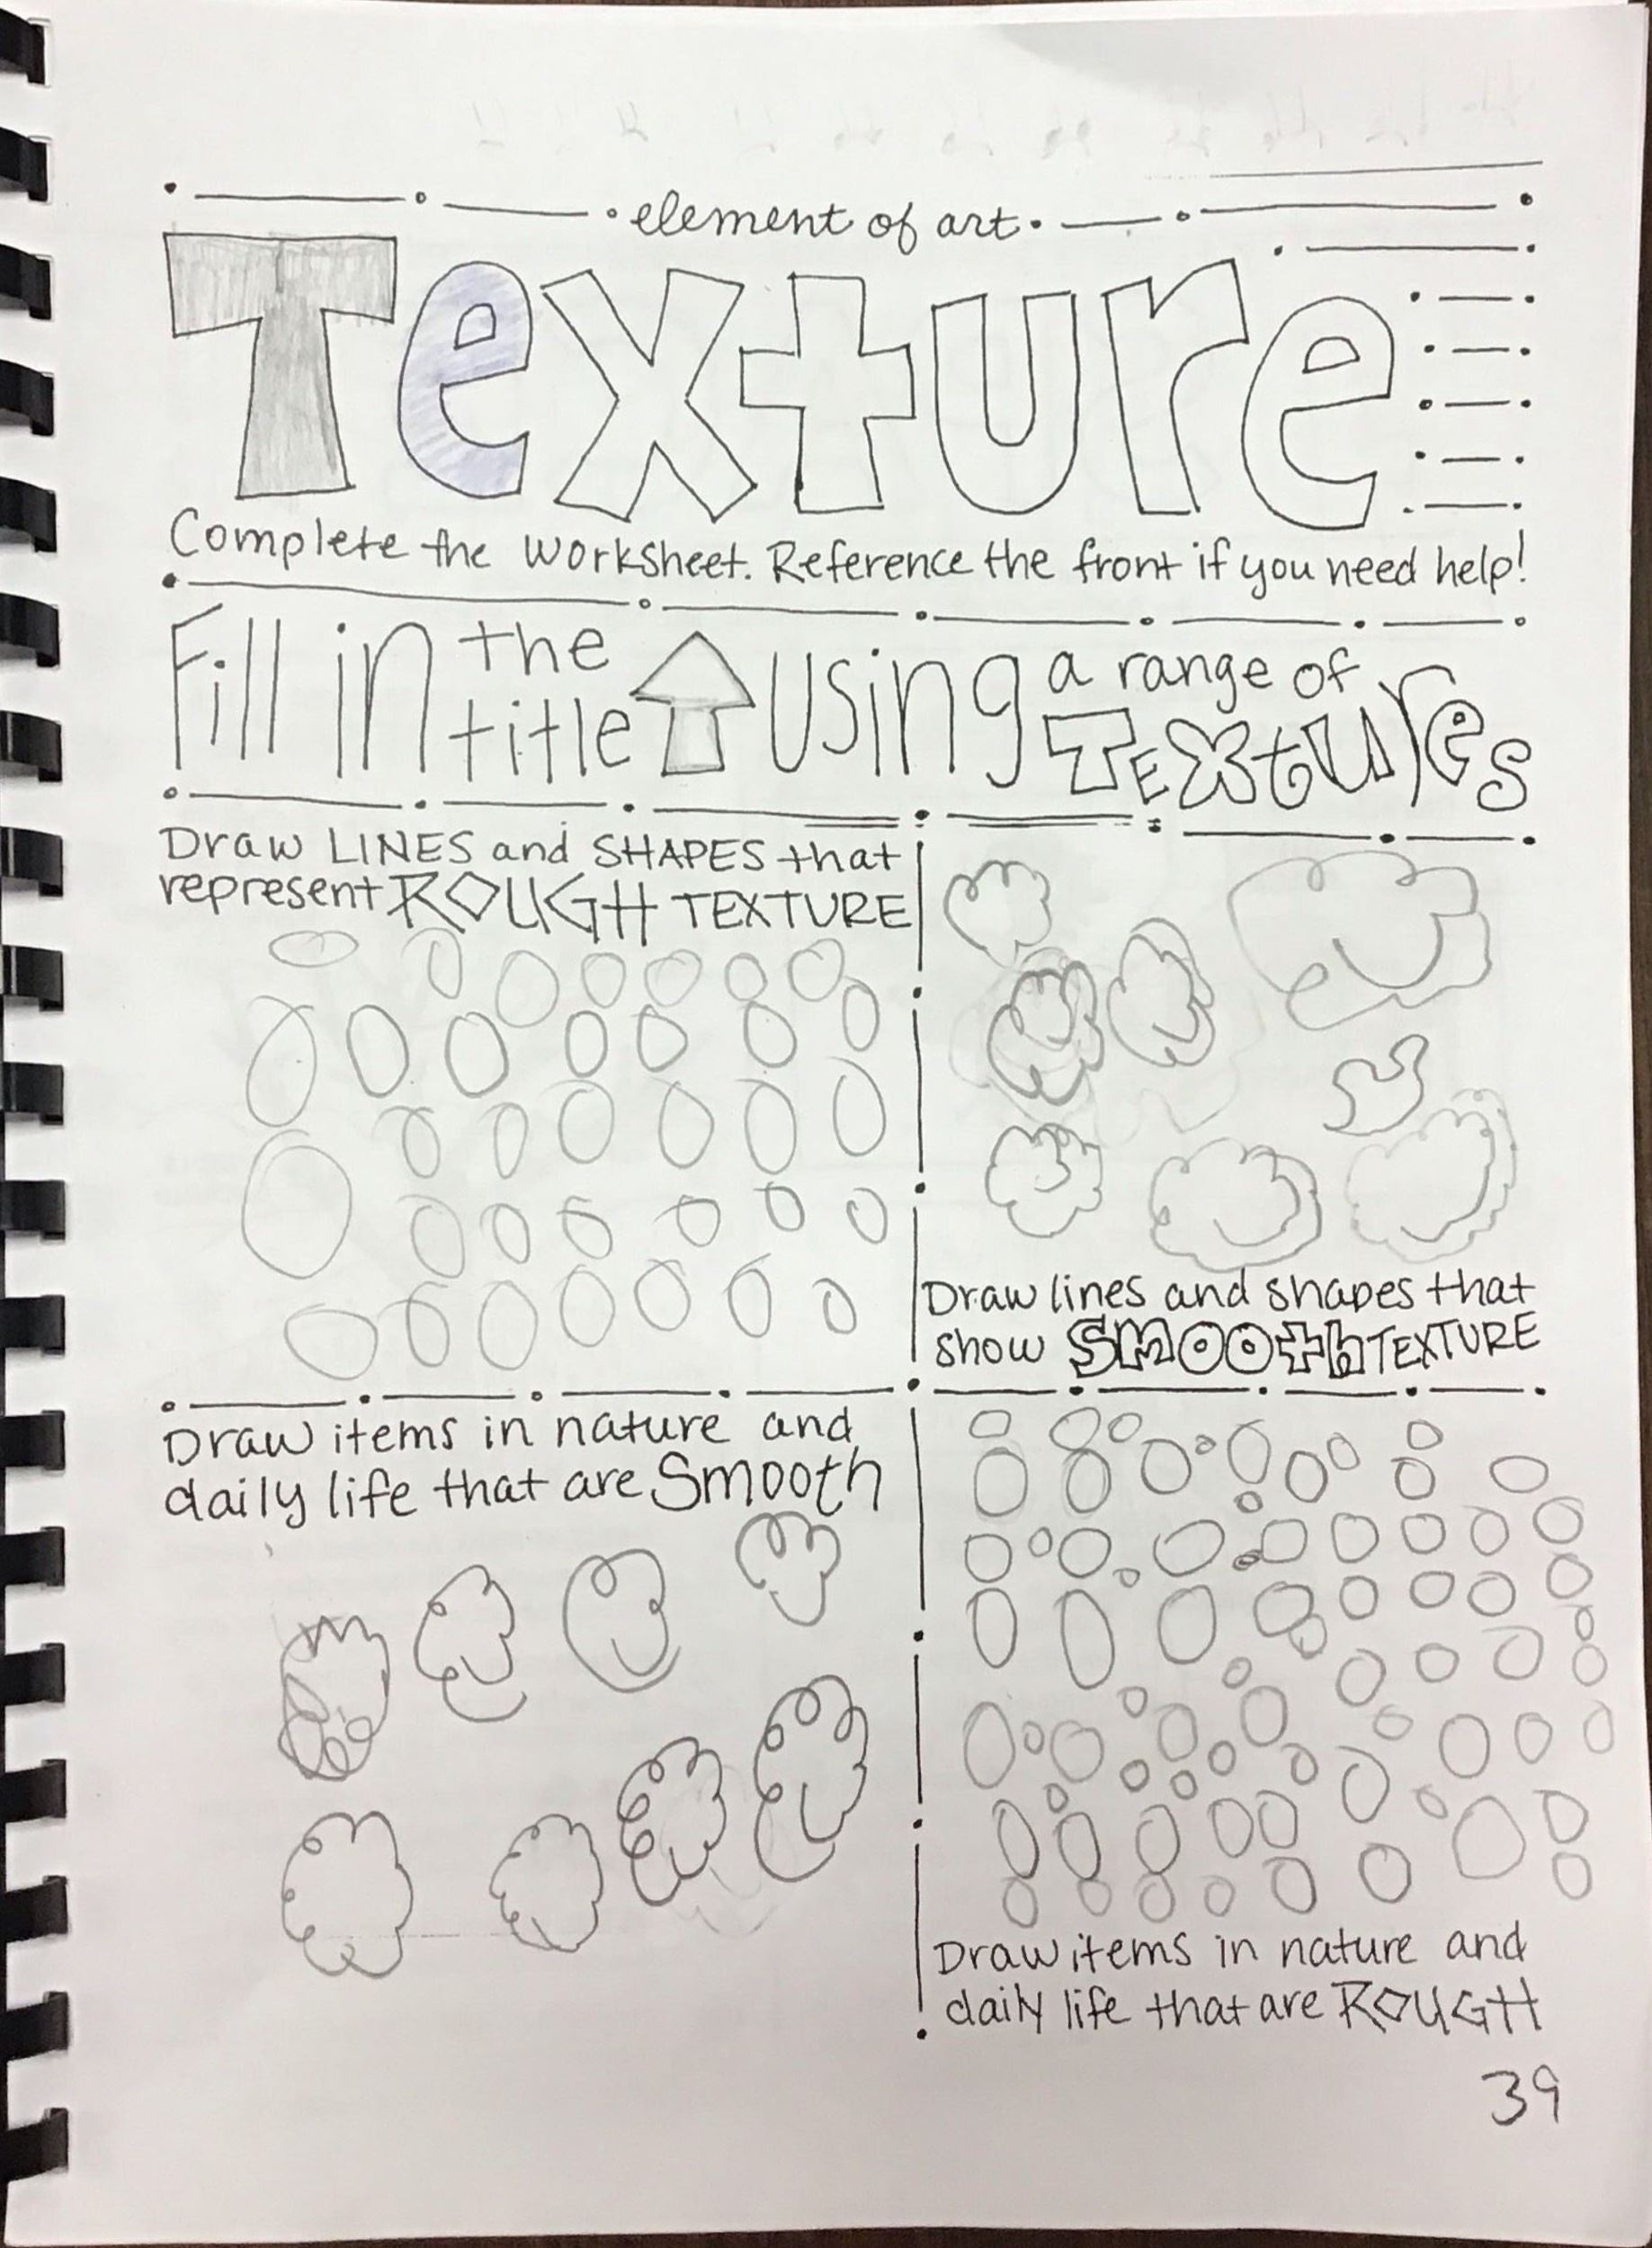 element of art
Texture
Complete the worksheet. Reference the front if you need help!
Fill in the title using a range of TExtures
Draw LINES and SHAPES that
represent ROUGH TEXTURE
Draw lines and shapes that
show SMOOth TEXTURE
Draw items in nature and
daily life that are Smooth
Draw items in nature and
daily life that are ROUGH
39